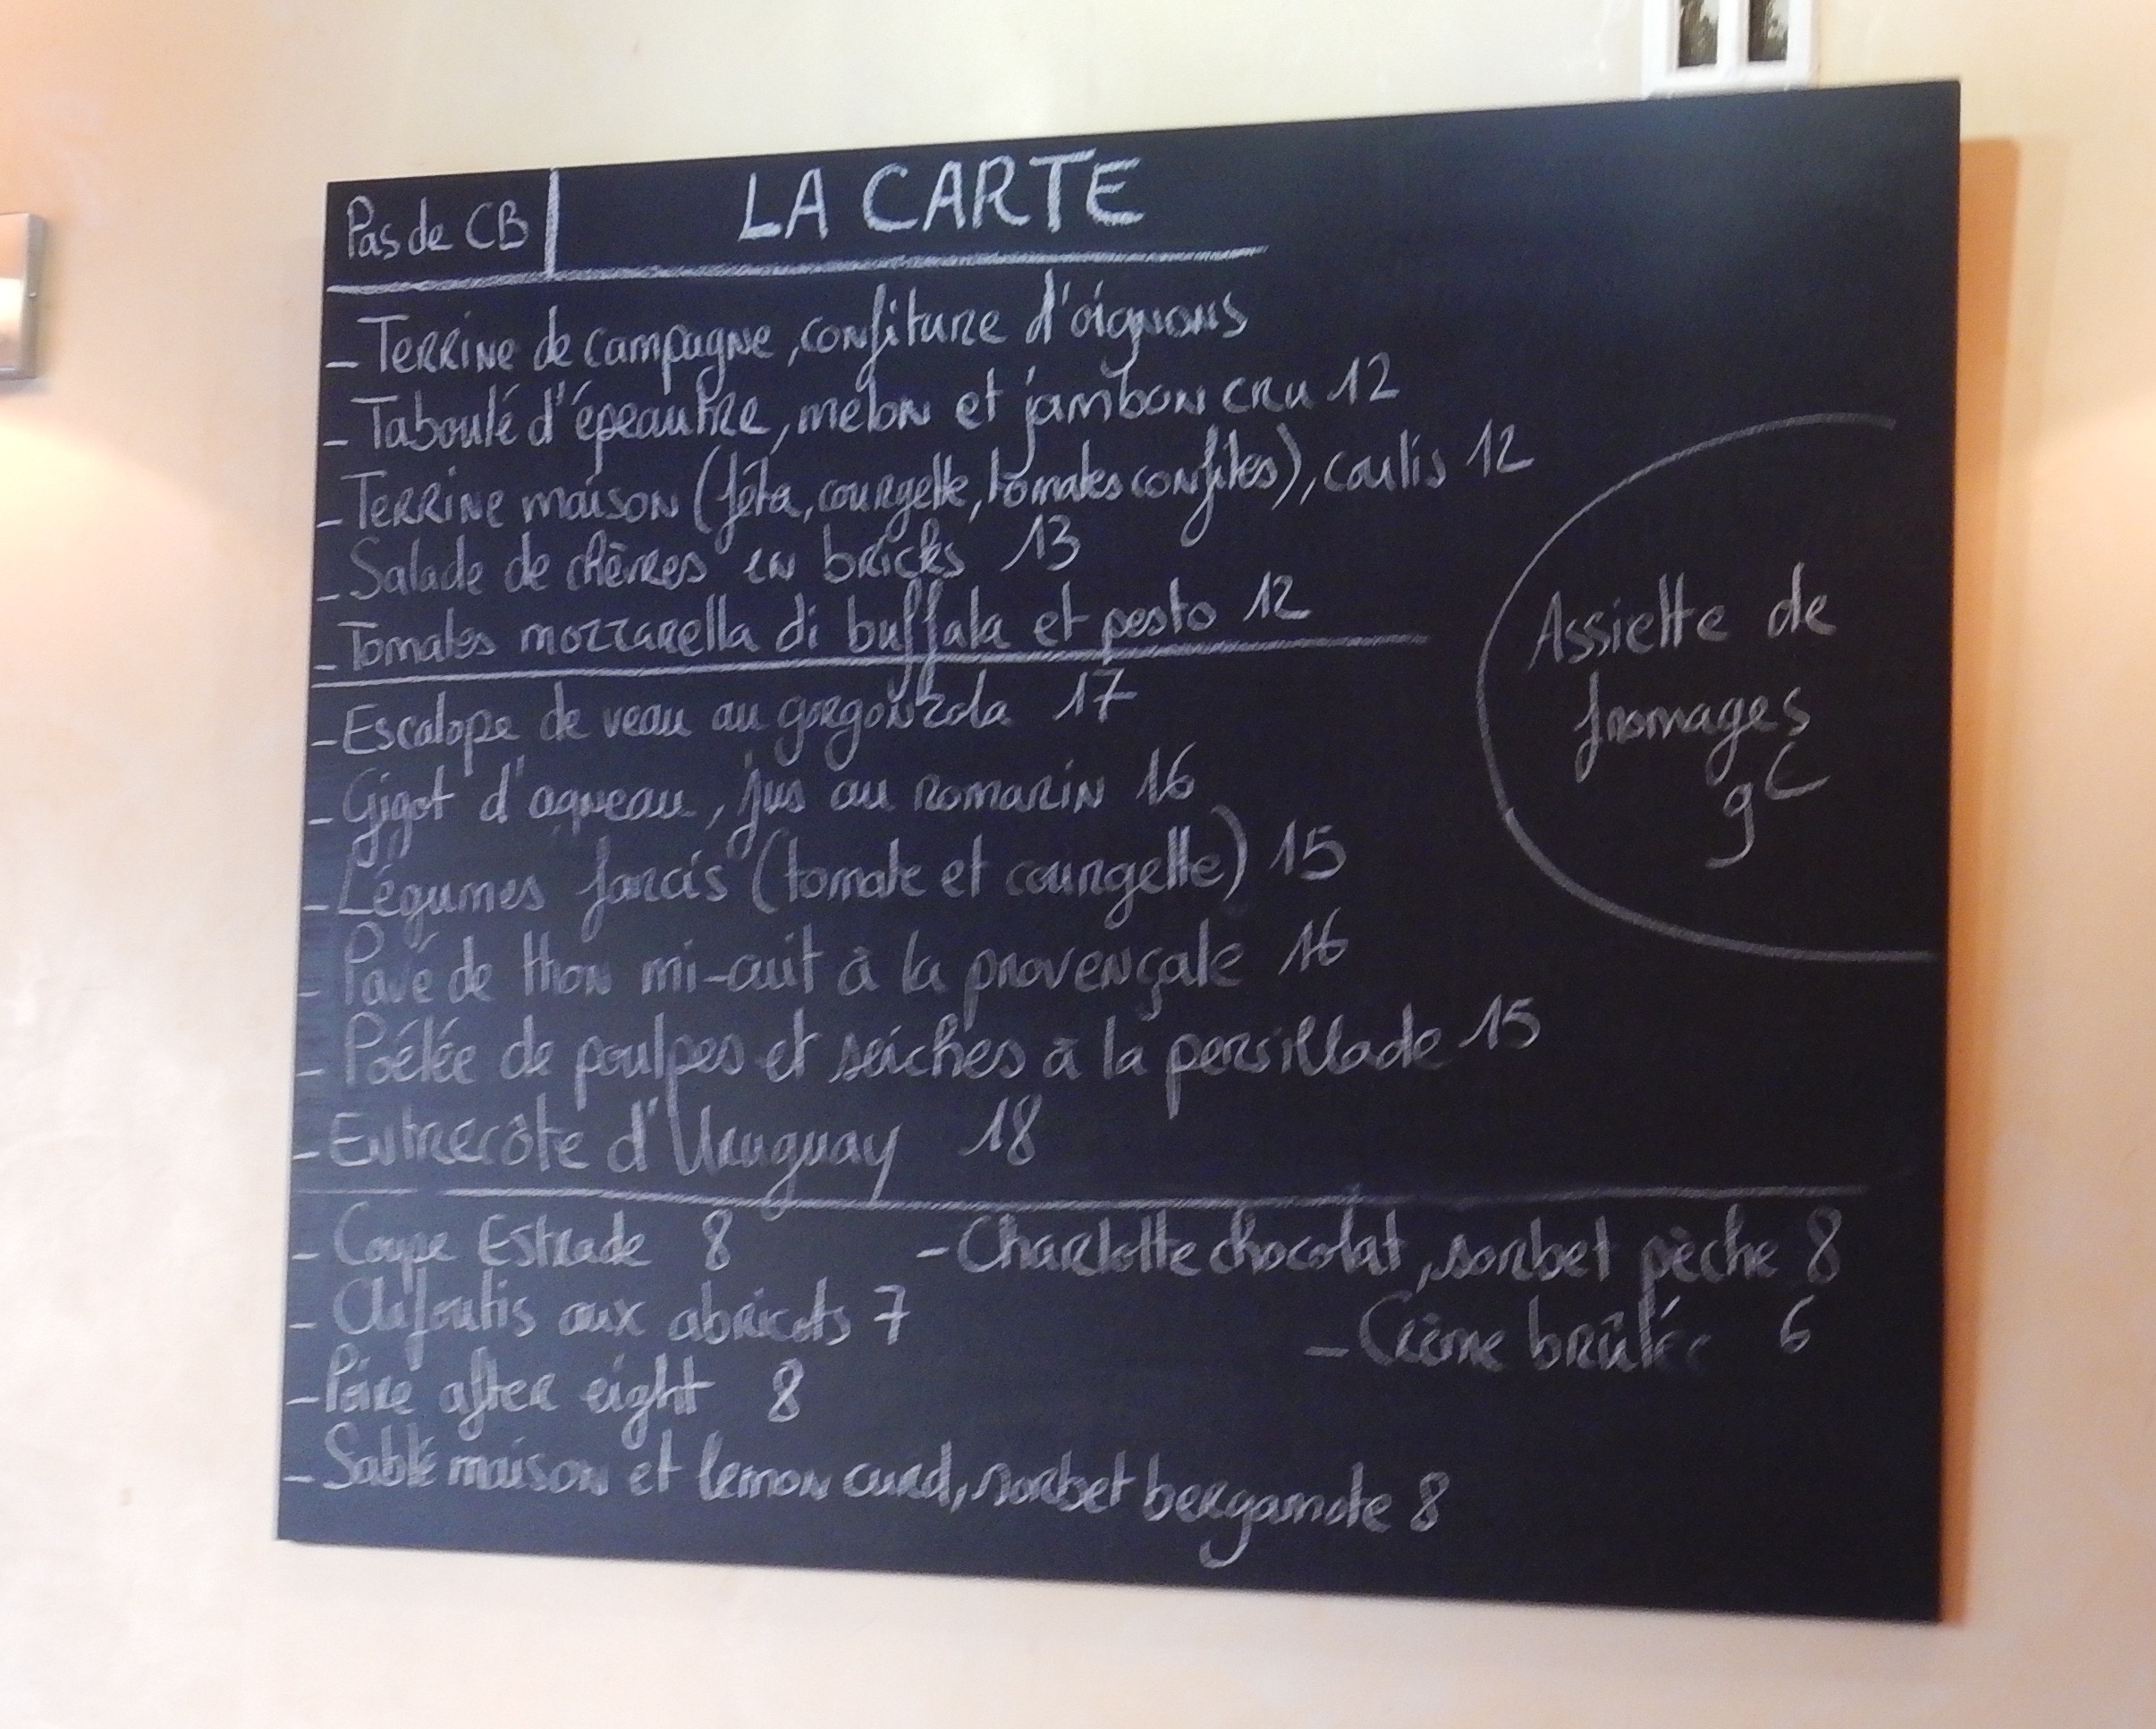 Pas de CB
LA CARTE
- Terrine de campagne, confiture d'oignons
- Taboulé d'épeautre, melon et jambon cru 12
- Terrine maison (fêta, courgette, tomates confites), coulis 12
- Salade de chèvres en bricks 13
- Tomates mozzarella di buffala et pesto 12
- Escalope de veau au gorgonzola 17
- Gigot d'agneau, jus au romarin 16
- Légumes farcis (tomate et courgette) 15
- Pavé de thon mi-cuit à la provençale 16
- Poêlée de poulpes et seiches à la persillade 15
- Entrecôte d'Uruguay 18
Assiette de
fromages
9€
- Coupe Estrade 8
- Charlotte chocolat, sorbet pèche 8
- Clafoutis aux abricots 7
- Crème brûlée 6
- Poire after eight 8
- Sablé maison et lemon curd, sorbet bergamote 8